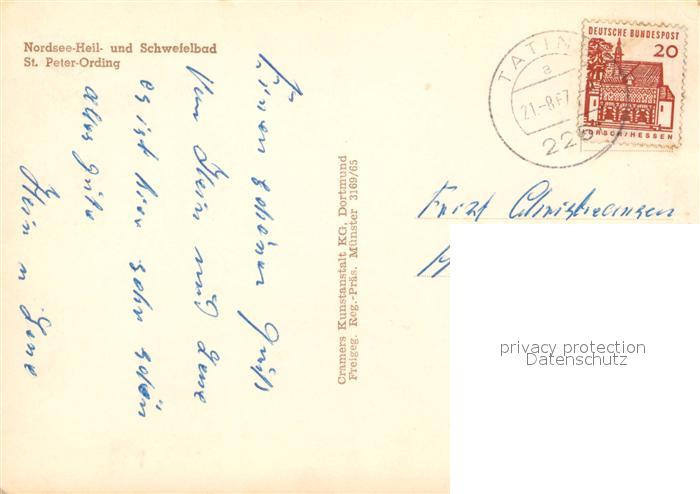 Nordsee-Heil- und Schwefelbad
St. Peter-Ording
einen schönen Gruß
von Hein und Lene
es ist hier sehr schön
alles gute
Hein u Lene
Cramers Kunstanstalt KG, Dortmund
Freigeg. Reg.-Präs. Münster 3169/65
TATIN
a
21.-8.67
225
DEUTSCHE BUNDESPOST
20
LORSCH/HESSEN
Christiansen
privacy protection
Datenschutz